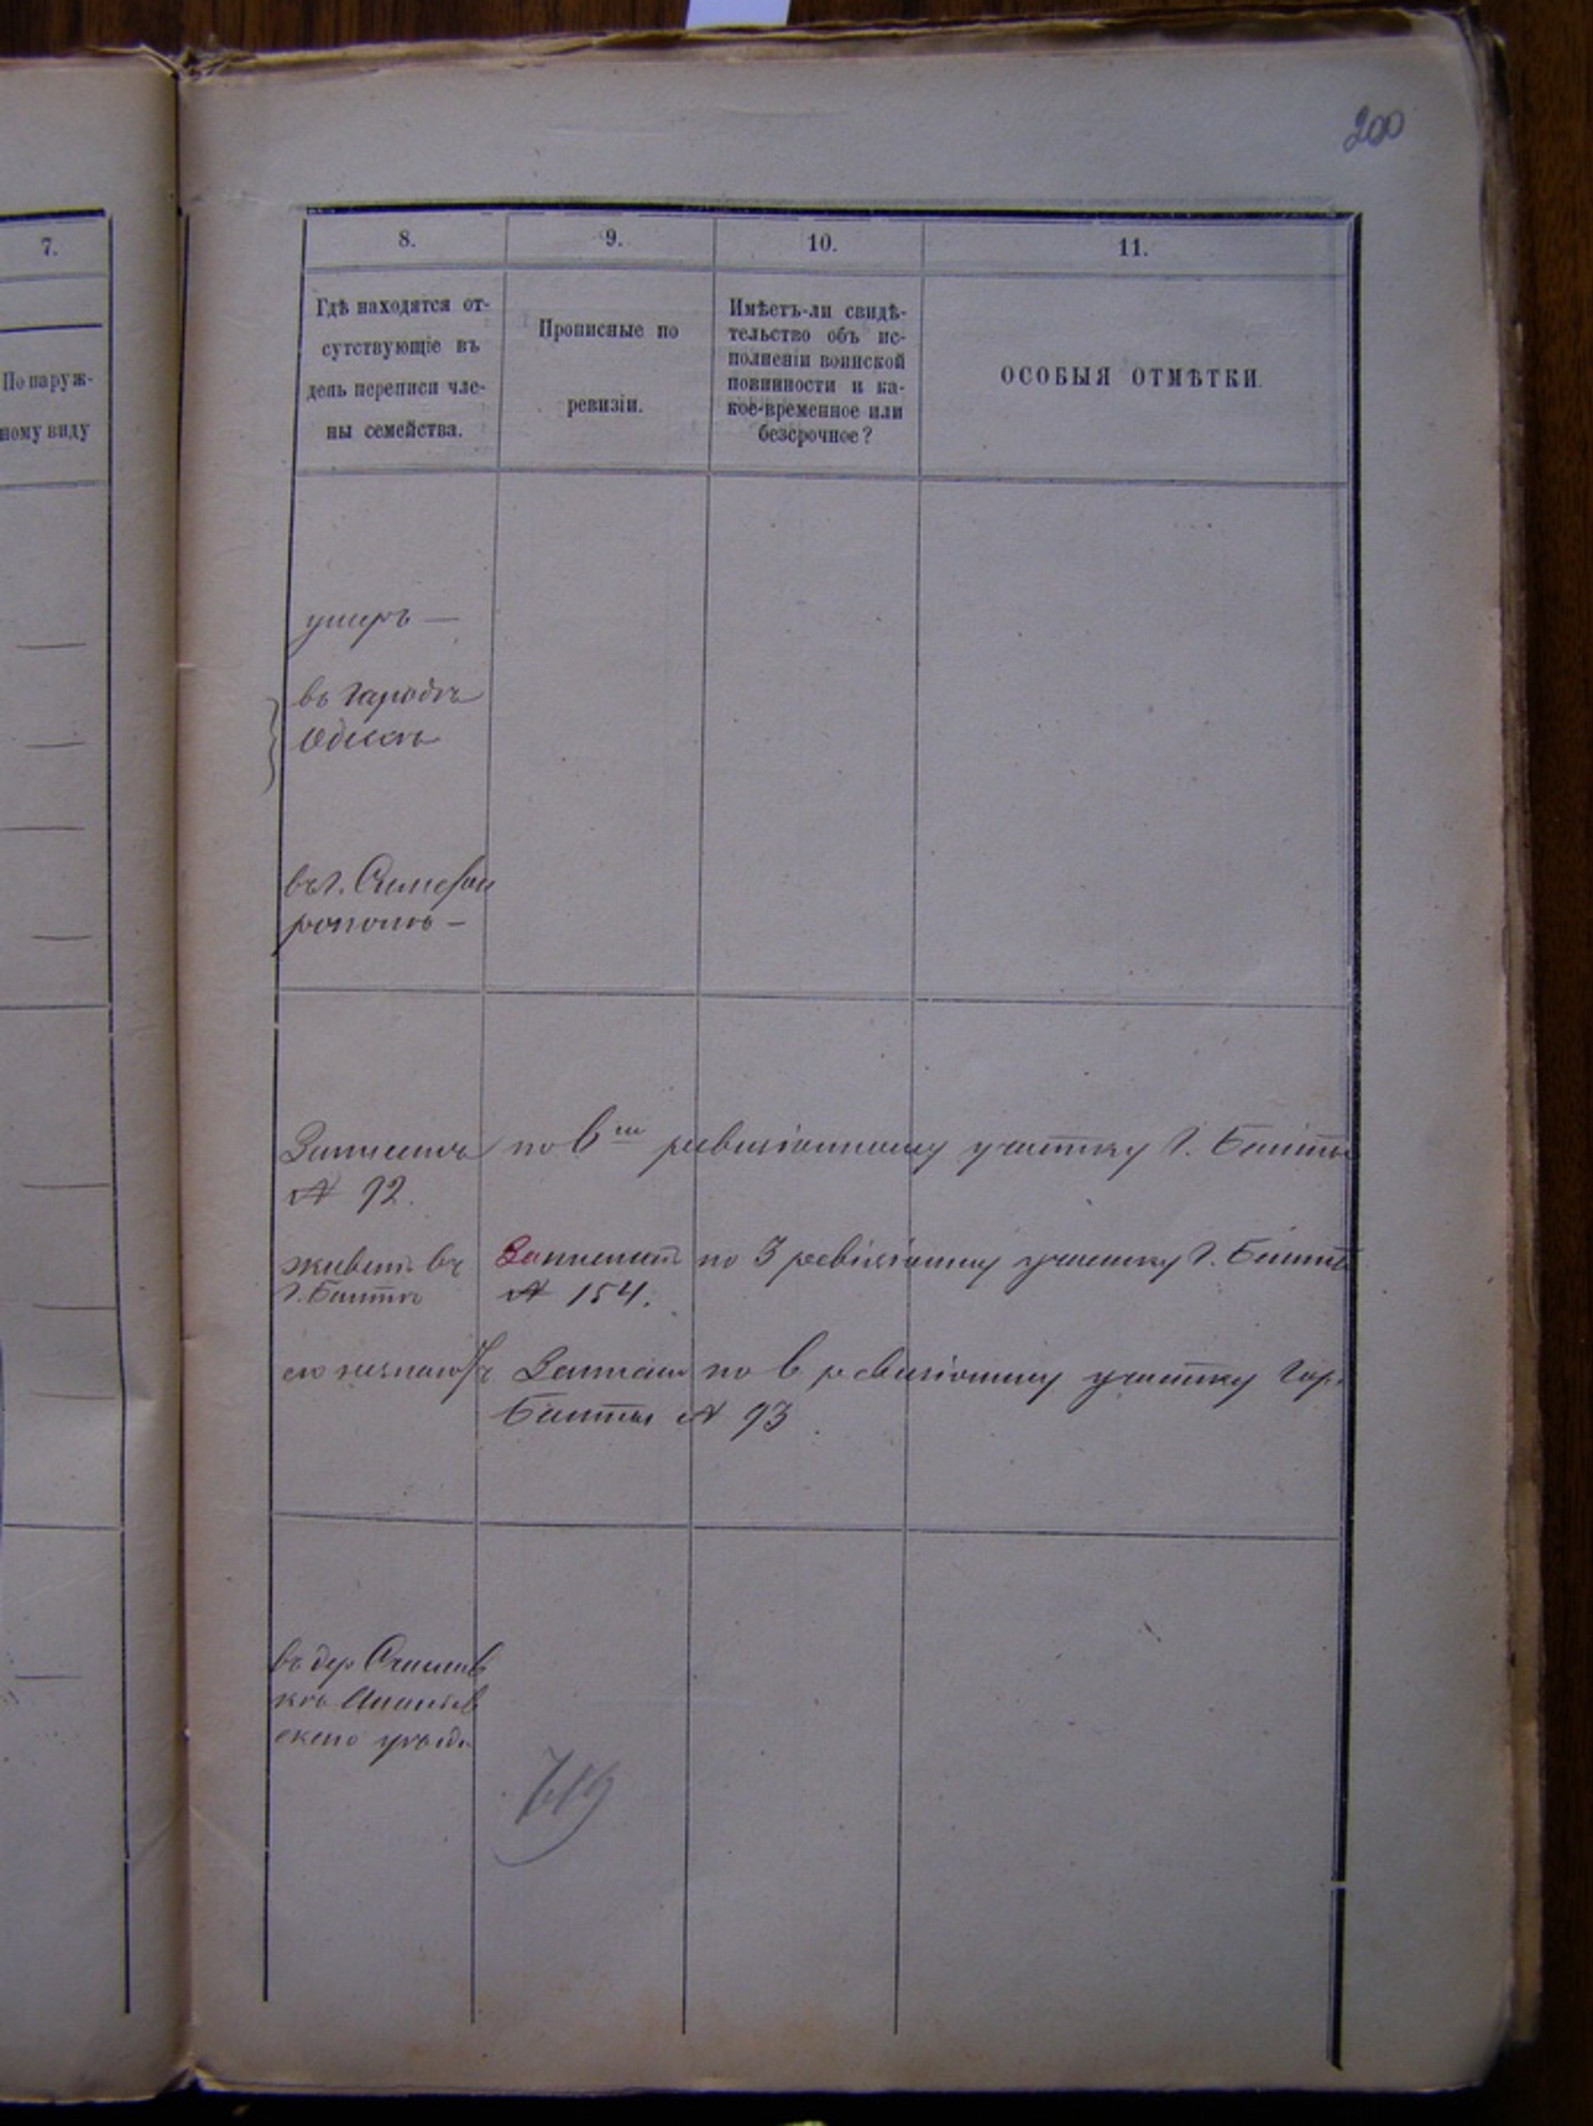 200
7.
По наруж-
ному виду
8.
9.
10.
11.
Гдѣ находятся от-
сутствующіе въ
день переписи чле-
ны семейства.
Прописные по
ревизіи.
Имѣетъ-ли свидѣ-
тельство объ ис-
полненіи воинской
повинности и ка-
кое-временное или
безсрочное?
ОСОБЫЯ ОТМѢТКИ.
умеръ —
въ городѣ
Одессѣ
въ г. Симфе
рополѣ —
по 6 ревизіонному участку г. Балты
№ 92.
живетъ въ
г. Балтѣ
Записанъ по 3 ревизіонному участку г. Балты
№ 154.
Записанъ по 6 ревизіонному участку гор.
Балты № 93
въ дер
Ананьев
скаго уѣзда
719